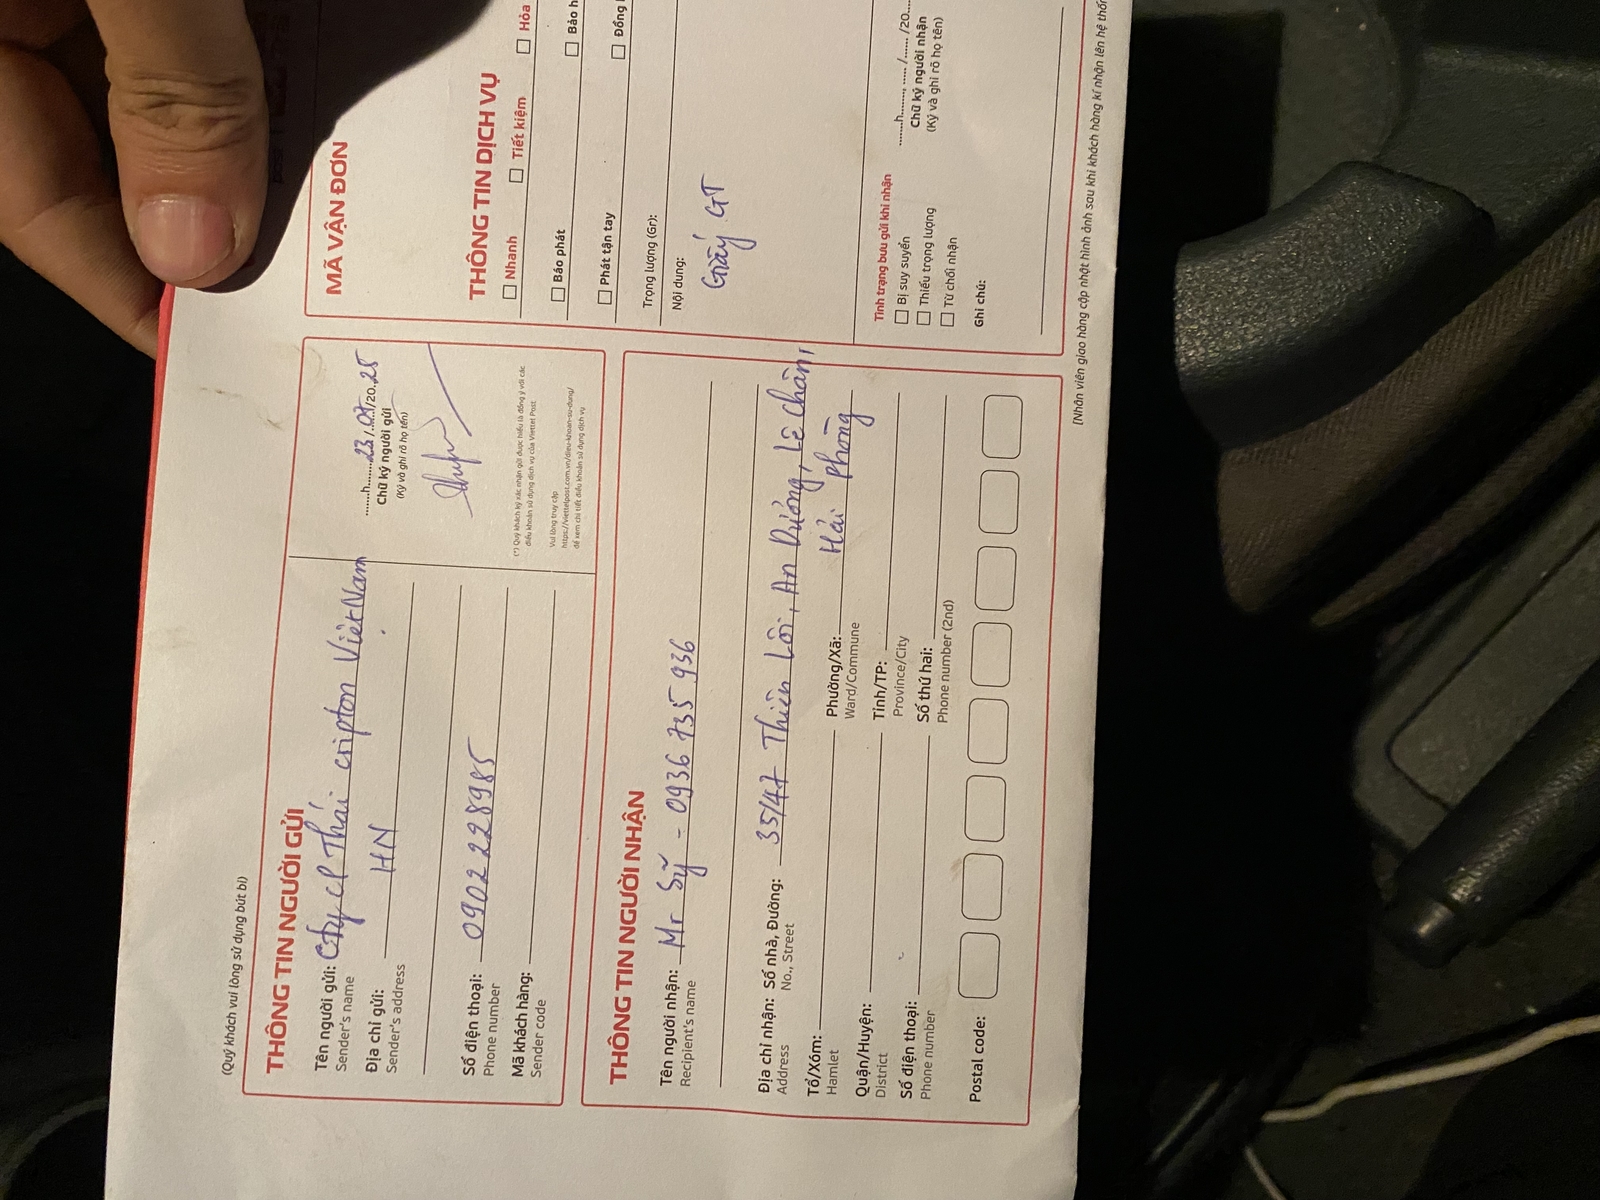 (Quý khách vui lòng sử dụng bút bi)
THÔNG TIN NGƯỜI GỬI
Tên người gửi: Cty CP Thái cripton Việt Nam
Sender's name
Địa chỉ gửi: HN
Sender's address
Số điện thoại: 0902228985
Phone number
Mã khách hàng:
Sender code
......h......23/07/20.25
Chữ ký người gửi
(Ký và ghi rõ họ tên)
(*) Quý khách ký xác nhận gửi được hiểu là đồng ý với các
điều khoản sử dụng dịch vụ của Viettel Post
Vui lòng truy cập
https://viettelpost.com.vn/dieu-khoan-su-dung/
để xem chi tiết điều khoản sử dụng dịch vụ
THÔNG TIN NGƯỜI NHẬN
Tên người nhận: Mr Sỹ - 0936 735 936
Recipient's name
Địa chỉ nhận: Số nhà, Đường: 35/47 Thiên Lôi, An Dương, Lê Chân,
Address No., Street
Hải Phòng
Tổ/Xóm: Phường/Xã:
Hamlet Ward/Commune
Quận/Huyện: Tỉnh/TP:
District Province/City
Số điện thoại: Số thứ hai:
Phone number Phone number (2nd)
Postal code:
MÃ VẬN ĐƠN
THÔNG TIN DỊCH VỤ
Nhanh Tiết kiệm Hỏa
Báo phát Bảo h
Phát tận tay Đồng
Trọng lượng (Gr):
Nội dung:
Giấy GT
Tình trạng bưu gửi khi nhận
Bị suy suyển
Thiếu trọng lượng
Từ chối nhận
Ghi chú:
......h......, ...../....../20....
Chữ ký người nhận
(Ký và ghi rõ họ tên)
[Nhân viên giao hàng cập nhật hình ảnh sau khi khách hàng kí nhận lên hệ thốn